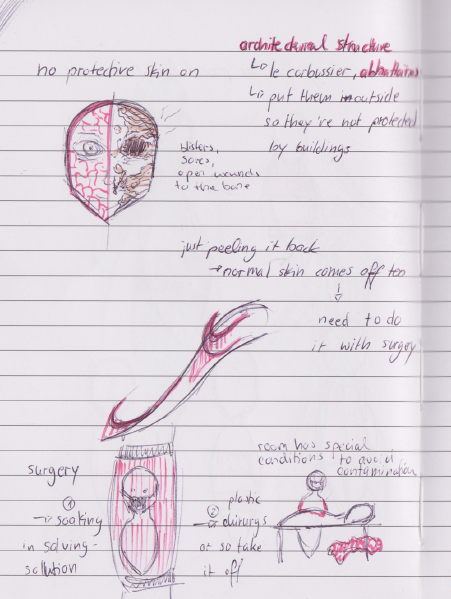 architectural structure
no protective skin on
↳ le corbussier, abbattoirs
↳ put them outside
so they're not protected
by buildings
blisters,
sores,
open wounds
to the bone
just peeling it back
→ normal skin comes off too
↓
need to do
it with surgery
room has special
conditions to avoid
contamination
surgery
① → soaking
in solving-
solution
② plastic
→ chirurgs
or so take
it off